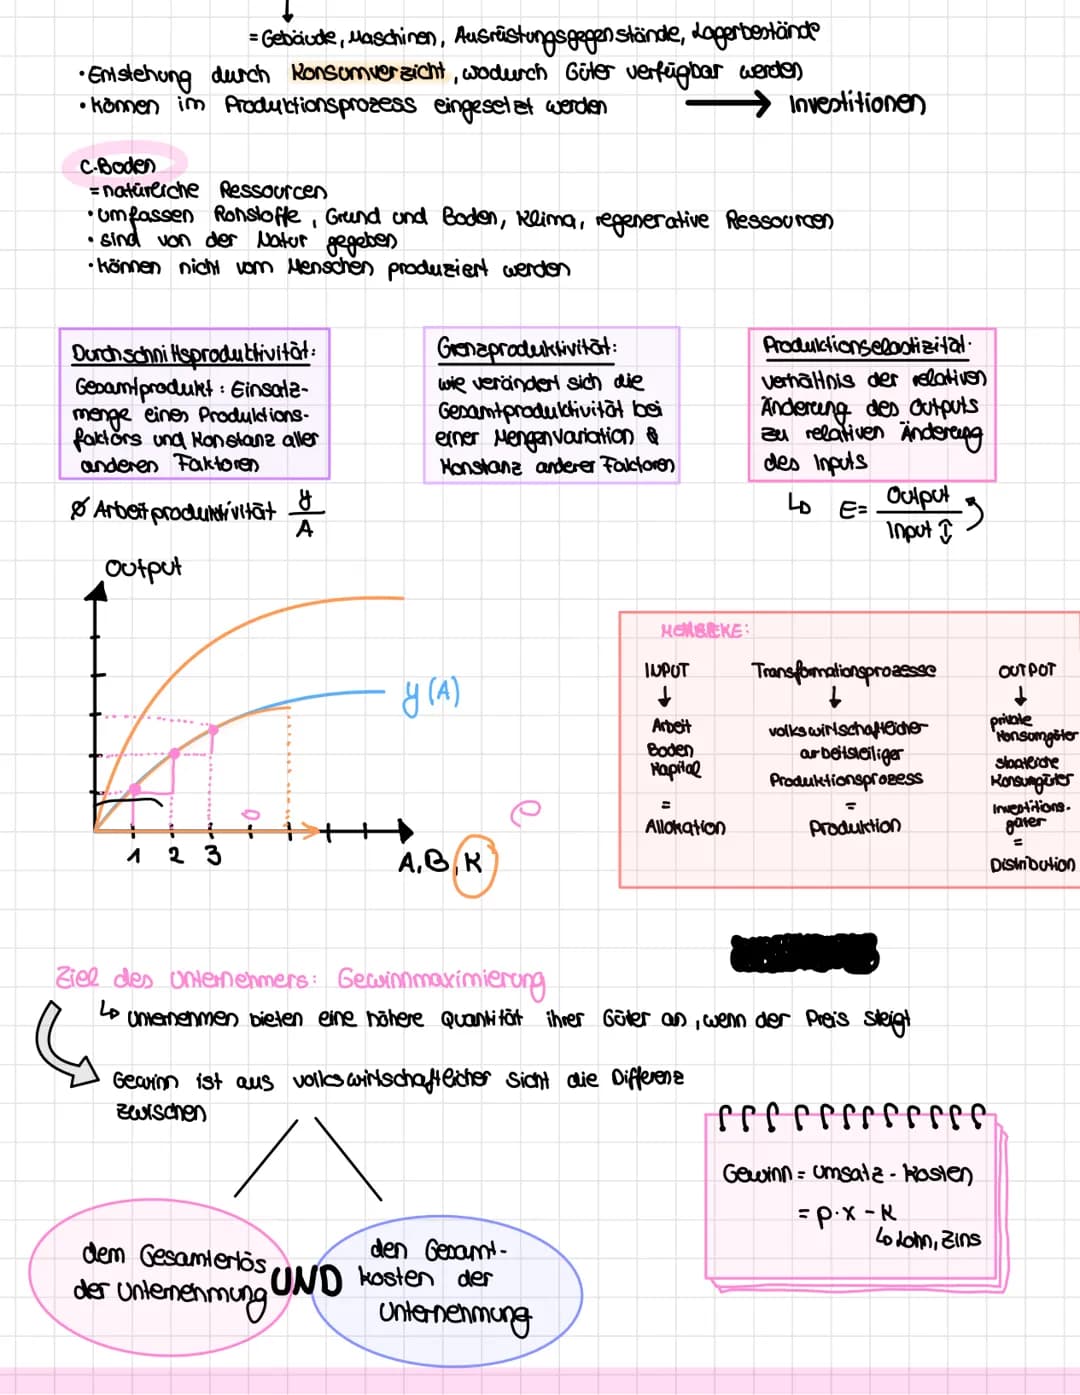 = Gebäude, Maschinen, Ausrüstungsgegenstände, Lagerbestände
• Entstehung durch Konsumverzicht, wodurch Güter verfügbar werden
• können im Produktionsprozess eingesetzt werden → Investitionen
C. Boden
= natürliche Ressourcen
• umfassen Rohstoffe, Grund und Boden, Klima, regenerative Ressourcen
• sind von der Natur gegeben
• können nicht vom Menschen produziert werden
Durchschnittsproduktivität:
Gesamtprodukt : Einsatz-
menge eines Produktions-
faktors und Konstanz aller
anderen Faktoren
Grenzproduktivität:
wie verändert sich die
Gesamtproduktivität bei
einer Mengenvariation &
Konstanz anderer Faktoren
Produktionselastizität:
Verhältnis der relativen
Änderung des Outputs
zu relativen Änderung
des Inputs
Ø Arbeitproduktivität y/A
↳ E= Output
Input ↕
Output
y(A)
1 2 3
A, B, K
MERKE:
INPUT
↓
Arbeit
Boden
Kapital
=
Allokation
Transformationsprozesse
↓
volkswirtschaftlicher
arbeitsteiliger
Produktionsprozess
=
Produktion
OUTPUT
↓
private
Konsumgüter
staatliche
Konsumgüter
Investitions-
güter
=
Distribution
Ziel des Unternehmers: Gewinnmaximierung
↳ Unternehmen bieten eine höhere Quantität ihrer Güter an, wenn der Preis steigt
Gewinn ist aus volkswirtschaftlicher Sicht die Differenz
zwischen
dem Gesamterlös
der Unternehmung
UND
den Gesamt-
kosten der
Unternehmung
Gewinn = Umsatz - Kosten
= p·x - K
↳ Lohn, Zins